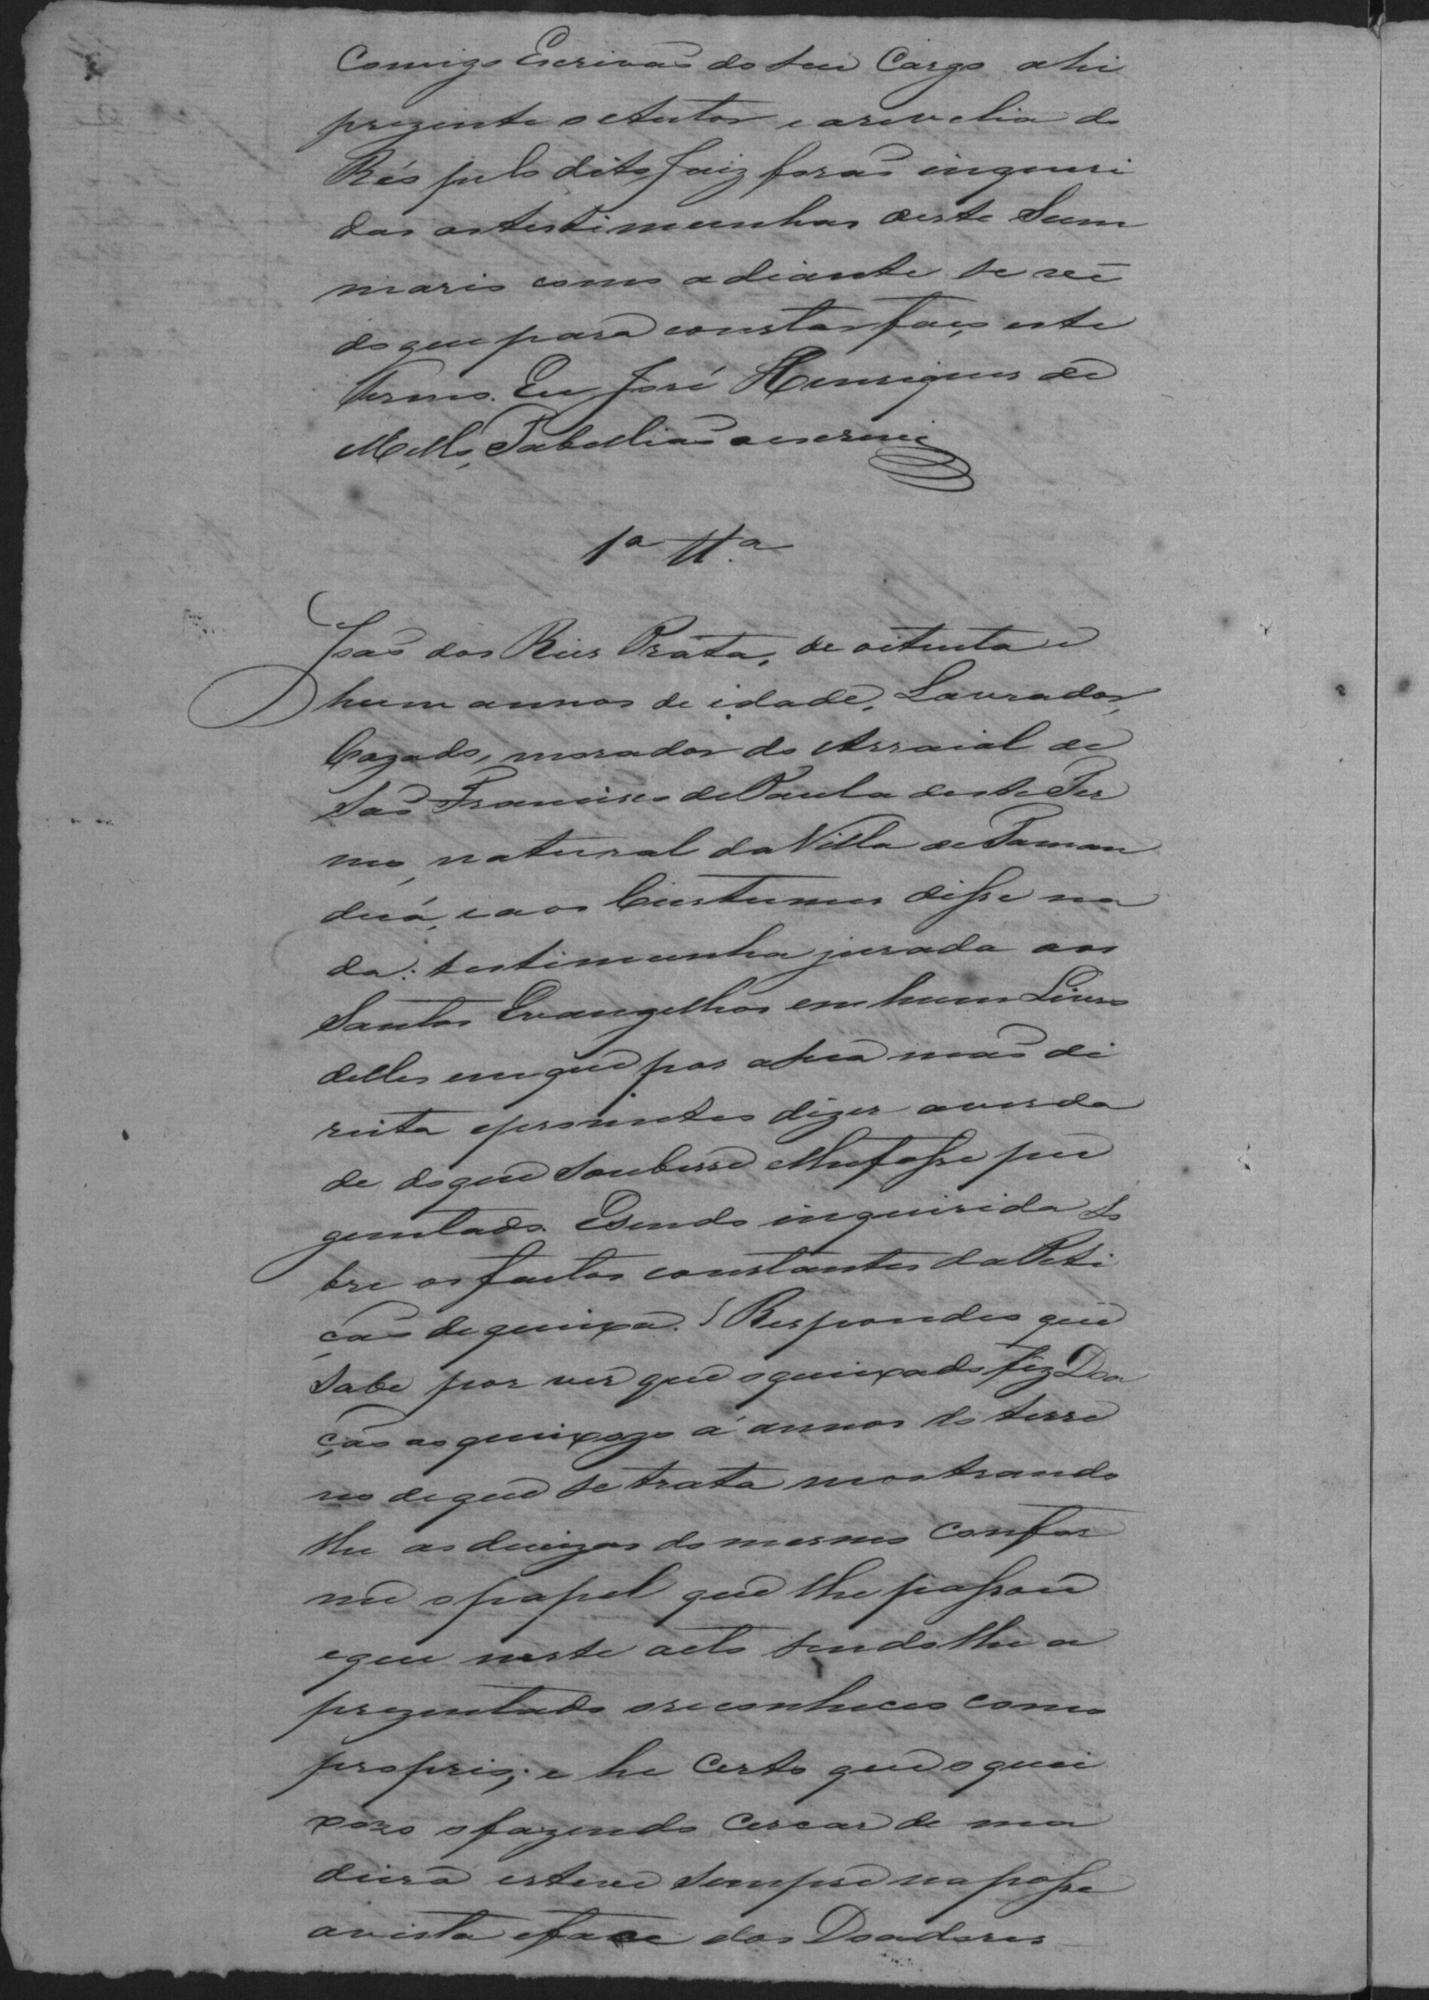 Comigo Escrivaõ do seu Cargo ahi
prezente o Autor e arevelia do
Réo pelo dito Juiz foraõ inqueri
das as testimunhas deste Sum
mario como adiante se vê
do que para constar faço este
Termo. Eu José Henriques de
Mello, Tabelliaõ o escrevi
1ª Tª
Joaõ dos Reis Prata, de oitenta e
hum annos de idade, Lavrador,
Cazado, morador do Arraial de
Saõ Francisco de Paula deste Ter
mo, natural da Villa de Taman
duá, e aos Custumes disse na
da: testimunha jurada aos
Santos Evangelhos em hum Livro
delles em que pos a sua maõ di
reita e prometeo dizer a verda
de do que soubesse e lhe fosse per
guntado. E sendo inquirida so
bre os factos constantes da Peti
çaõ de queixa. Respondeo que
sabe por ver que o queixado fez Doa
çaõ ao queixozo á annos do terre
no de que se trata mostrando
lhe as devizas do mesmo confor
me o papel que lhe passou
e que neste acto sendo lhe a
prezentado o reconheceo como
proprio; e he certo que o quei
xozo o fazendo cercar de ma
deira esteve sempre na posse
a vista e face dos Doadores